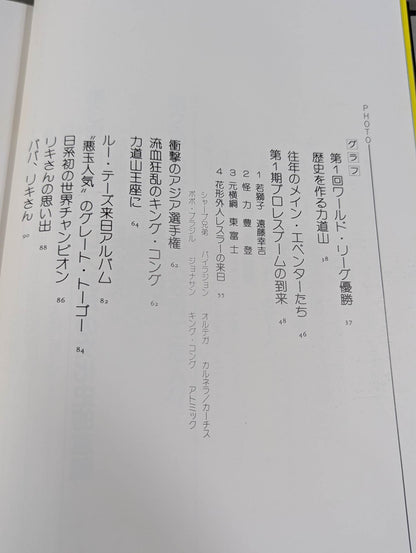 PHOTO
グラフ
第1回ワールド・リーグ優勝 37
歴史を作る力道山 38
往年のメイン・エベンターたち 46
第1期プロレスブームの到来 48
1 若獅子 遠藤幸吉
2 怪力豊登
3 元横綱 東富士
4 花形外人レスラーの来日 55
シャープ兄弟 バイラジョン オルテガ カルネラ/カーチス
ボボ・ブラジル ジョナサン キング・コング アトミック
衝撃のアジア選手権 62
流血狂乱のキング・コング 62
力道山王座に 64
ルー・テーズ来日アルバム 82
“悪玉人気”のグレート・トーゴー 84
日系初の世界チャンピオン 86
リキさんの思い出 88
パパ、リキさん 90